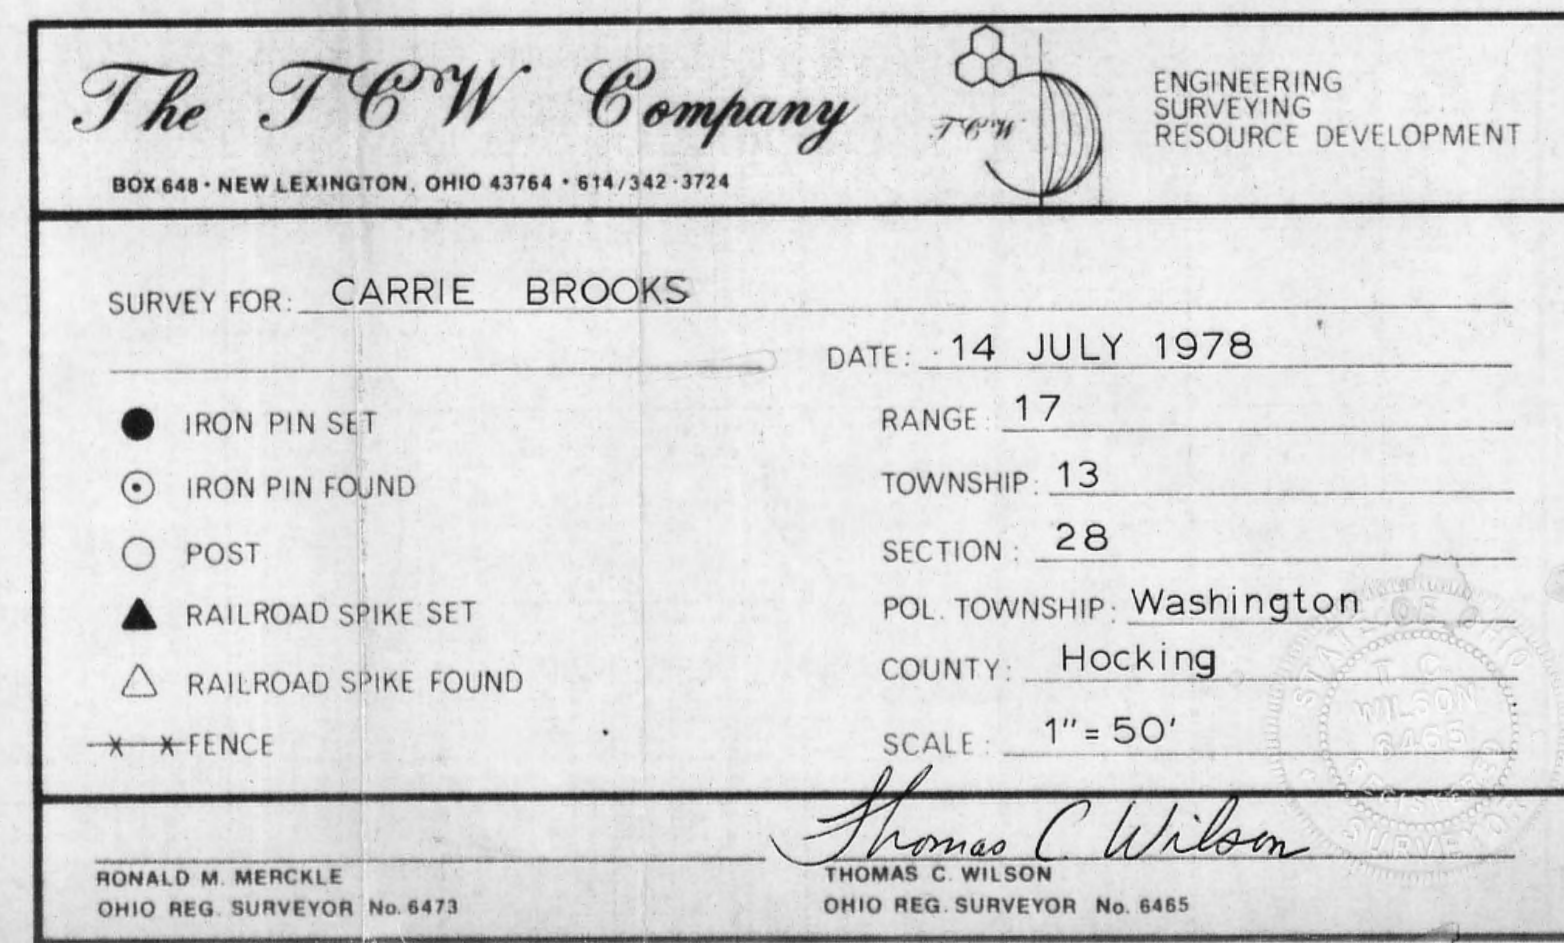 The TCW Company
BOX 648 · NEW LEXINGTON, OHIO 43764 · 614/342-3724
TCW
ENGINEERING
SURVEYING
RESOURCE DEVELOPMENT
SURVEY FOR: CARRIE BROOKS
DATE: 14 JULY 1978
IRON PIN SET
IRON PIN FOUND
POST
RAILROAD SPIKE SET
RAILROAD SPIKE FOUND
FENCE
RANGE: 17
TOWNSHIP: 13
SECTION: 28
POL. TOWNSHIP: Washington
COUNTY: Hocking
SCALE: 1" = 50'
STATE OF OHIO
T. C.
WILSON
6465
REGISTERED
SURVEYOR
RONALD M. MERCKLE
OHIO REG. SURVEYOR No. 6473
Thomas C. Wilson
THOMAS C. WILSON
OHIO REG. SURVEYOR No. 6465